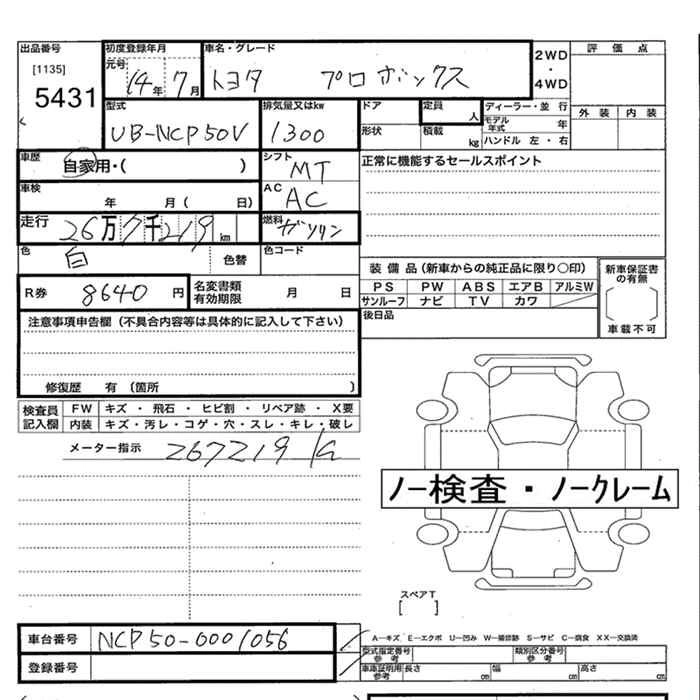 出品番号 初度登録年月 車名・グレード 2WD・4WD 評価点
[1135] 元号 14年 7月 トヨタ プロボックス
5431
型式 排気量又はkw ドア 定員 人 ディーラー・並行 外装 内装
UB-NCP50V 1300 形状 積載 kg モデル年式 年
ハンドル 左・右
車歴 自家用・( ) シフト MT 正常に機能するセールスポイント
車検 年 月( 日) AC AC
走行 26万7千219km 燃料 ガソリン
色 白 色替 色コード
装備品(新車からの純正品に限り○印) 新車保証書の有無
R券 8640円 名変書類有効期限 月 日 PS PW ABS エアB アルミW
サンルーフ ナビ TV カワ
車載不可
注意事項申告欄(不具合内容等は具体的に記入して下さい) 後日品
修復歴 有 (箇所 )
検査員記入欄 FW キズ・飛石・ヒビ割・リペア跡・X要
内装 キズ・汚レ・コゲ・穴・スレ・キレ・破レ
メーター指示 267219
ノー検査・ノークレーム
スペアT
[ ]
車台番号 NCP50-0001056 A―キズ E―エクボ U―凹み W―補修跡 S―サビ C―腐食 XX―交換済
型式指定番号 参考 類別区分番号 参考
登録番号 車庫証明用 参考 長さ cm 幅 cm 高さ cm